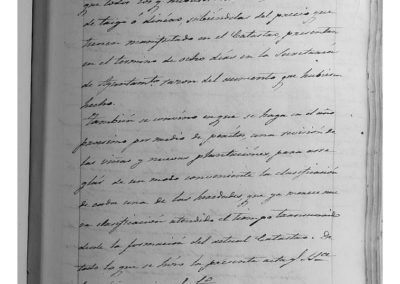 que todos los y
de tengo á dinero subiéndolas del precio que
tienen manifestado en el Catastro, presenten
en el termino de ocho dias en la Secretaria
de Ayuntamto. razon del aumento que hubiesen
hecho.
Tambien se convino en que se haga en el año
procsimo por medio de peritos una revision de
las viñas y nuevas plantaciones para arre
glar de un modo conveniente la clasificacion
de cada una de las heredades que ya merecen
su clasificacion atendido el tiempo transcurrido
desde la formacion del actual Catastro. De
todo lo que se hizo la presente acta q.